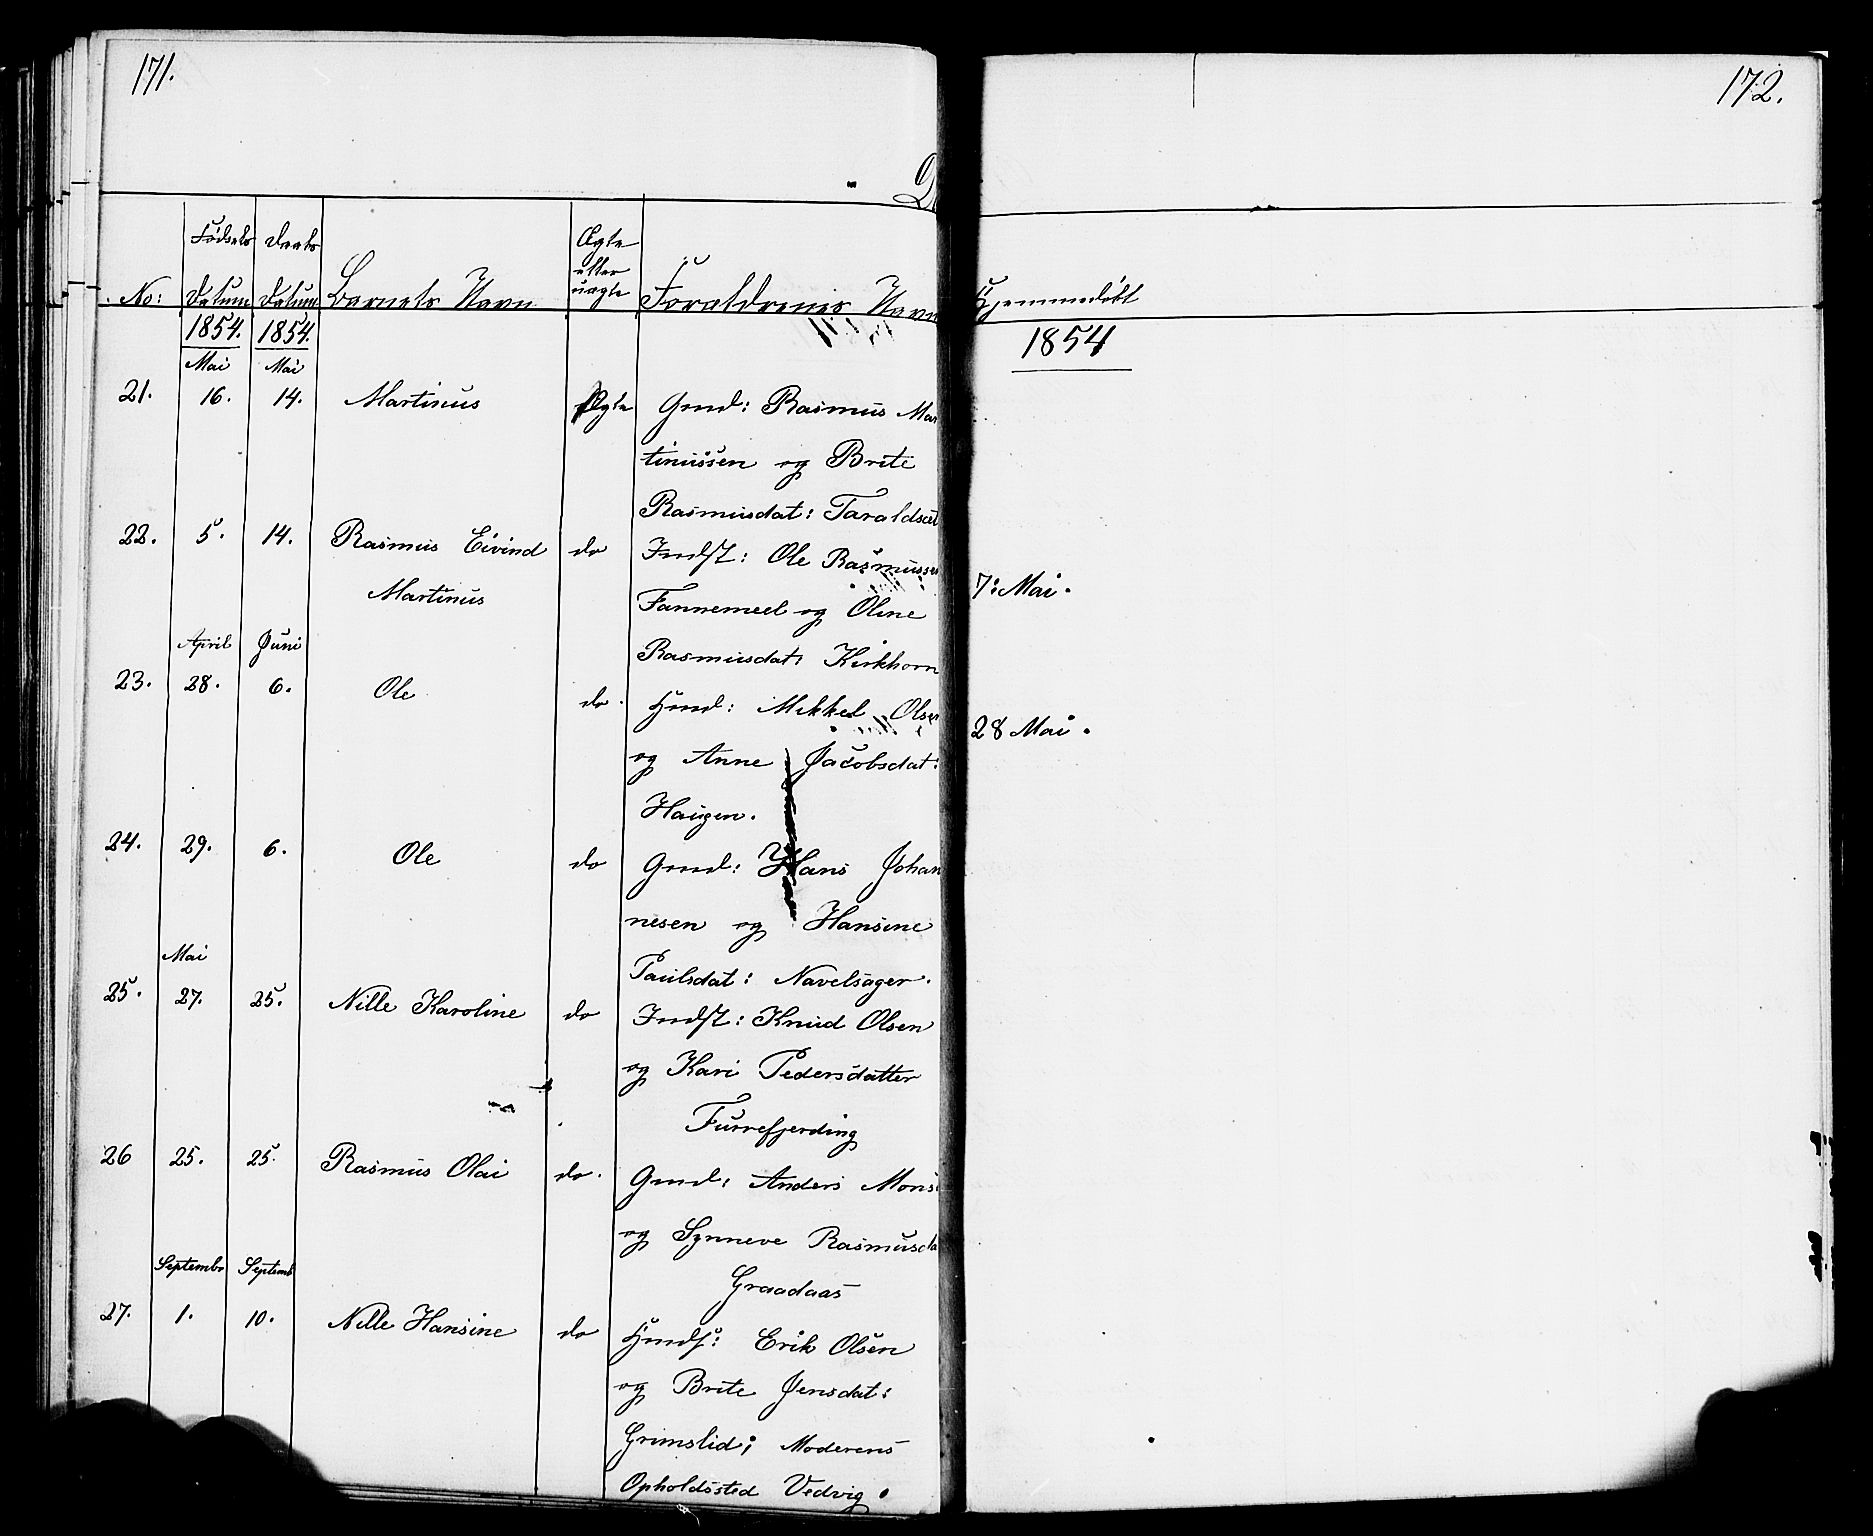 171.
No:
Fødsels Datum
Daabs Datum
Barnets Navn
Ægte eller uægte
Forældrenes Navn
1854. 1854.
Mai Mai
21. 16. 14. Martinus Ægte Gmd: Rasmus Mar
tinussen og Brite
Rasmusdat: Taraldset
22. 5. 14. Rasmus Eivind do Indst: Ole Rasmusse
Martinus Fannemeel og Oline
Rasmusdat: Kirkhorn
April Juni
23. 28. 6. Ole do. Hmd: Mikkel Olsen
og Anne Jacobsdat:
Haugen.
24. 29. 6. Ole do Gmd: Hans Johan
nesen og Hansine
Paulsdat: Navelsager.
Mai
25. 27. 25. Nille Karoline do Indst: Knud Olsen
og Kari Pedersdatter
Furrefjerding
26 25. 25. Rasmus Olai do. Gmd: Anders Mons
og Synneve Rasmusda
Graadaas
Septembr Septemb
27. 1. 10. Nille Hansine do Hmds: Erik Olsen
og Brite Jensdat:
Grimslid; Moderens
Opholdssted Vedvig.
172.
Hjemmedøbt
1854
7: Mai.
28 Mai.